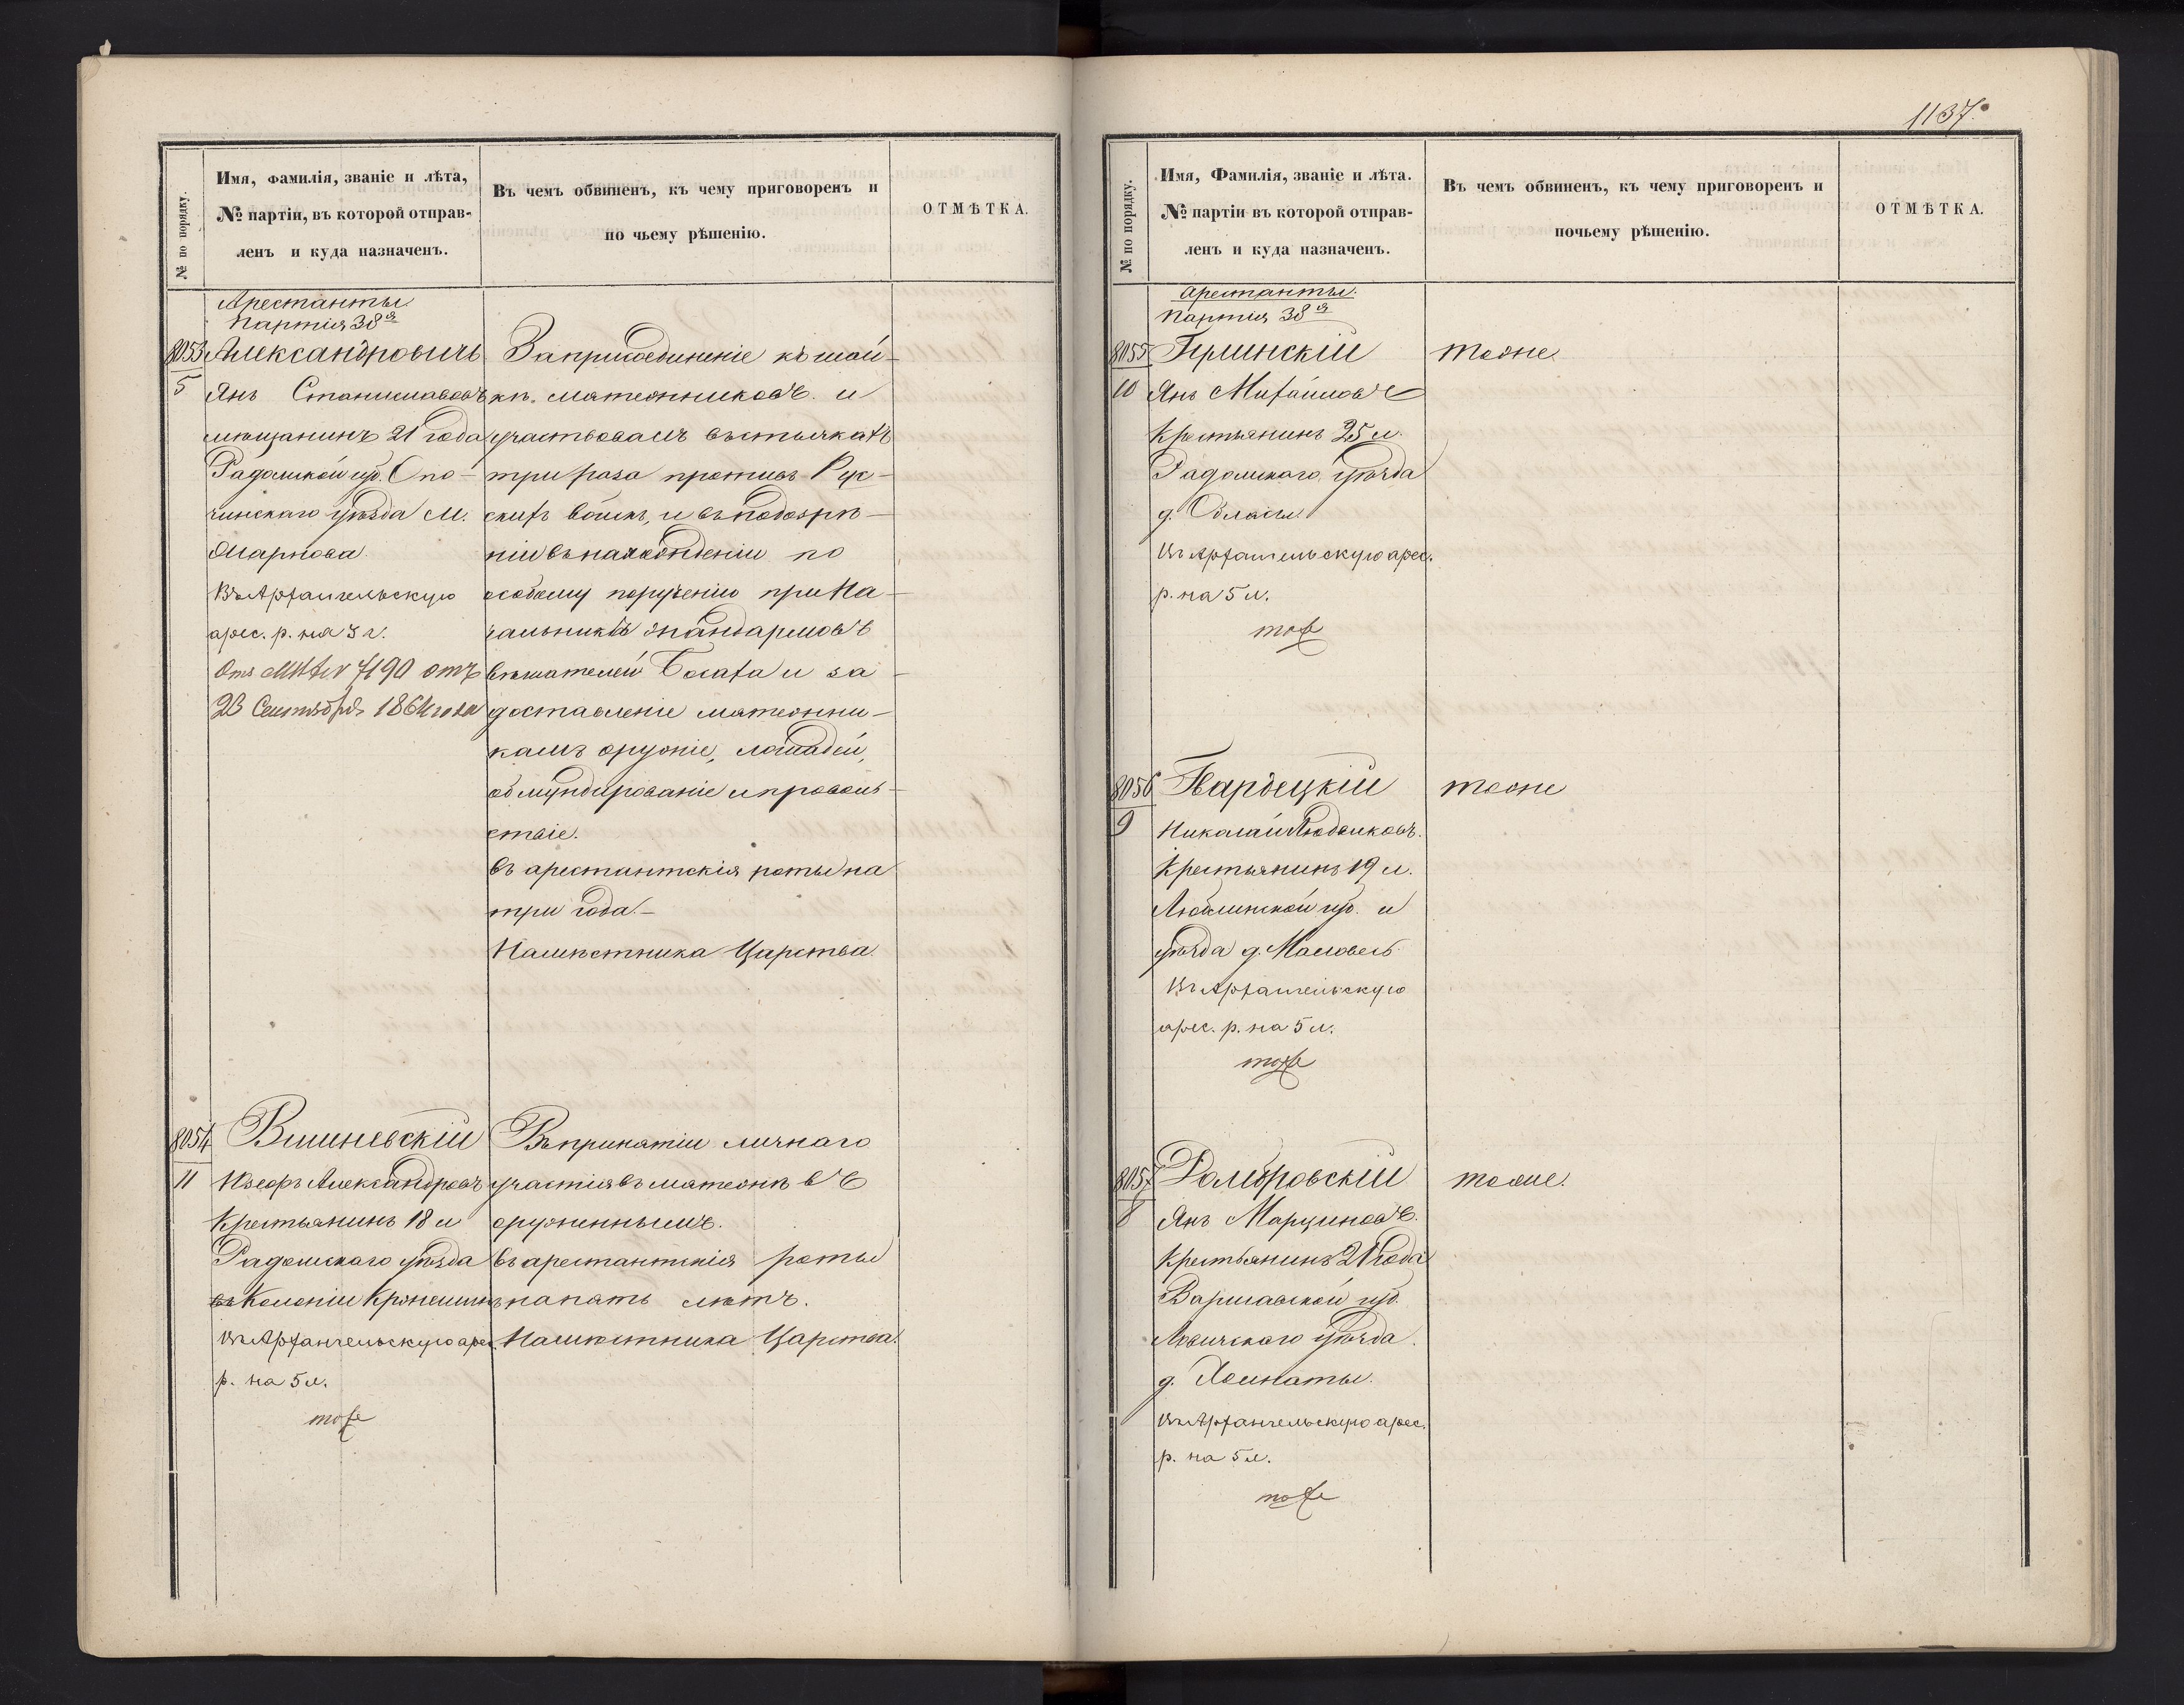 № по порядку.
Имя, Фамилія, званіе и лѣта,
№ партіи, въ которой отправ-
ленъ и куда назначенъ.
Въ чемъ обвиненъ, къ чему приговоренъ и
по чьему рѣшенію.
ОТМѢТКА.
Арестанты
Партія 38я
8053
5
Александровичъ
Янъ Станиславовъ
мѣщанинъ 21 года
Радомской губ. Опо-
чинскаго уѣзда м.
Въ Архангельскую
арес. р. на 3 г.
7190 отъ
23 Сентября 1864 года
За присоединеніе къ шай-
кѣ мятежниковъ и
участвовалъ въ стычкахъ
три раза противъ Рус-
скихъ войскъ, и въ подозрѣ-
ніи въ нахожденіи по
особому порученію при На-
чальникѣ жандармовъ
вѣшателей и за
доставленіе мятежни-
камъ оружіе, лошадей,
обмундированіе и проволь-
ствіе.
въ арестантскія роты на
три года.-
Намѣстника Царства.
8054
11
Вишневскій
Іозефъ Александровъ
Крестьянинъ 18 л
Радомскаго уѣзда
Колоніи
Въ Архангельскую арес.
р. на 5 л.
тоже
Въ принятіи личнаго
участія въ мятежѣ во
оруженнымъ.
въ арестантскія роты
на пять лѣтъ.
Намѣстника Царства.
1137
№ по порядку.
Имя, Фамилія, званіе и лѣта.
№ партіи въ которой отправ-
ленъ и куда назначенъ.
Въ чемъ обвиненъ, къ чему приговоренъ и
почьему рѣшенію.
ОТМѢТКА.
Арестанты.
Партія 38я
8055
10
Глинскій
Янъ Михайловъ
Крестьянинъ 25 л.
Радомскаго уѣзда
д.
Въ Архангельскую арес.
р. на 5 л.
тоже
тоже
8056
9
Гвардецкій
Николай Людвиковъ.
Крестьянинъ 19 л.
Люблинской губ. и
уѣзда д.
Въ Архангельскую
арес. р. на 5 л.
тоже
тоже
8057
8
Домбровскій
Янъ Марциновъ.
Крестьянинъ 21 года
Варшавской губ.
Ловичскаго уѣзда.
д.
Въ Архангельскую арес.
р. на 5 л.
тоже
тоже.